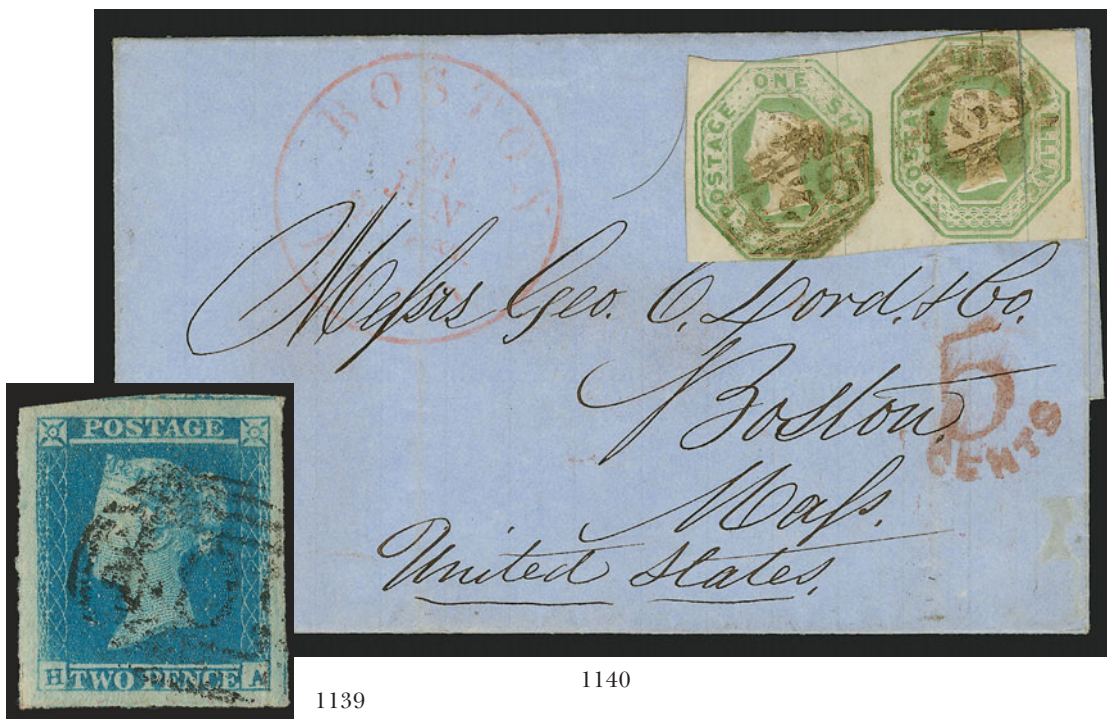 BOSTON
JUN
POSTAGE ONE SH
POSTA LLING
Messrs Geo. C. Lord. & Co.
Boston,
Mass.
United States,
5
CENTS
POSTAGE
H TWO PENCE A
1139
1140